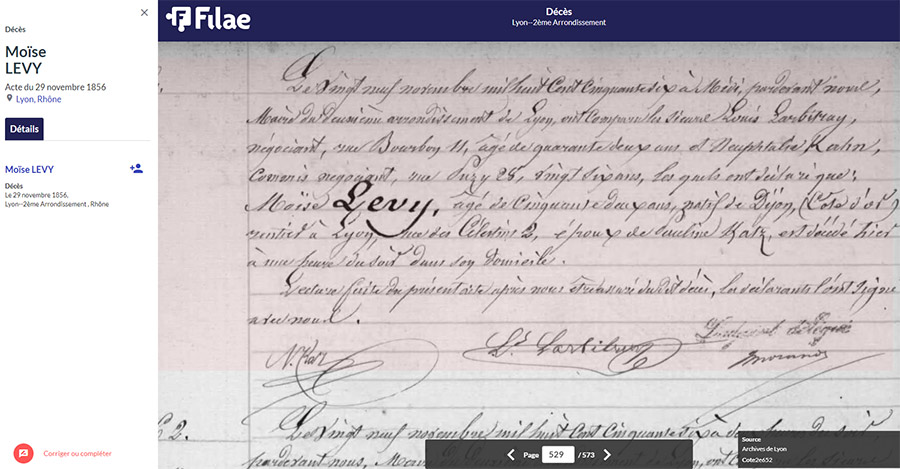 Décès
Moïse
LEVY
Acte du 29 novembre 1856
Lyon, Rhône
Détails
Moïse LEVY
Décès
Le 29 novembre 1856,
Lyon--2ème Arrondissement , Rhône
Corriger ou compléter
Filae
Décès
Lyon--2ème Arrondissement
Le vingt neuf novembre mil huit Cent Cinquante six à Midi, pardevant nous,
Maire du deuxième arrondissement de Lyon, ont comparu les sieurs Louis
négociant, rue Bourbon 11, agé de quarante deux ans et Nephtalie Kahn,
Commis négociant, rue Puzy 28, vingt six ans, les quels ont déclaré que:
Moïse Levy, agé de Cinquante deux ans, natif de Dijon, (Cote d'or)
rentier à Lyon, rue des Célestins 2, époux de Pauline Katz, est décédé hier
à une heure du soir dans son domicile.
Lecture faite du présent acte après nous être assuré du dit décès, les déclarants l'ont signé
avec nous.
2.
Le vingt neuf novembre mil huit Cent Cinquante six à
pardevant nous, Maire du
Page 529 / 573
Source
Archives de Lyon
Cote2e652